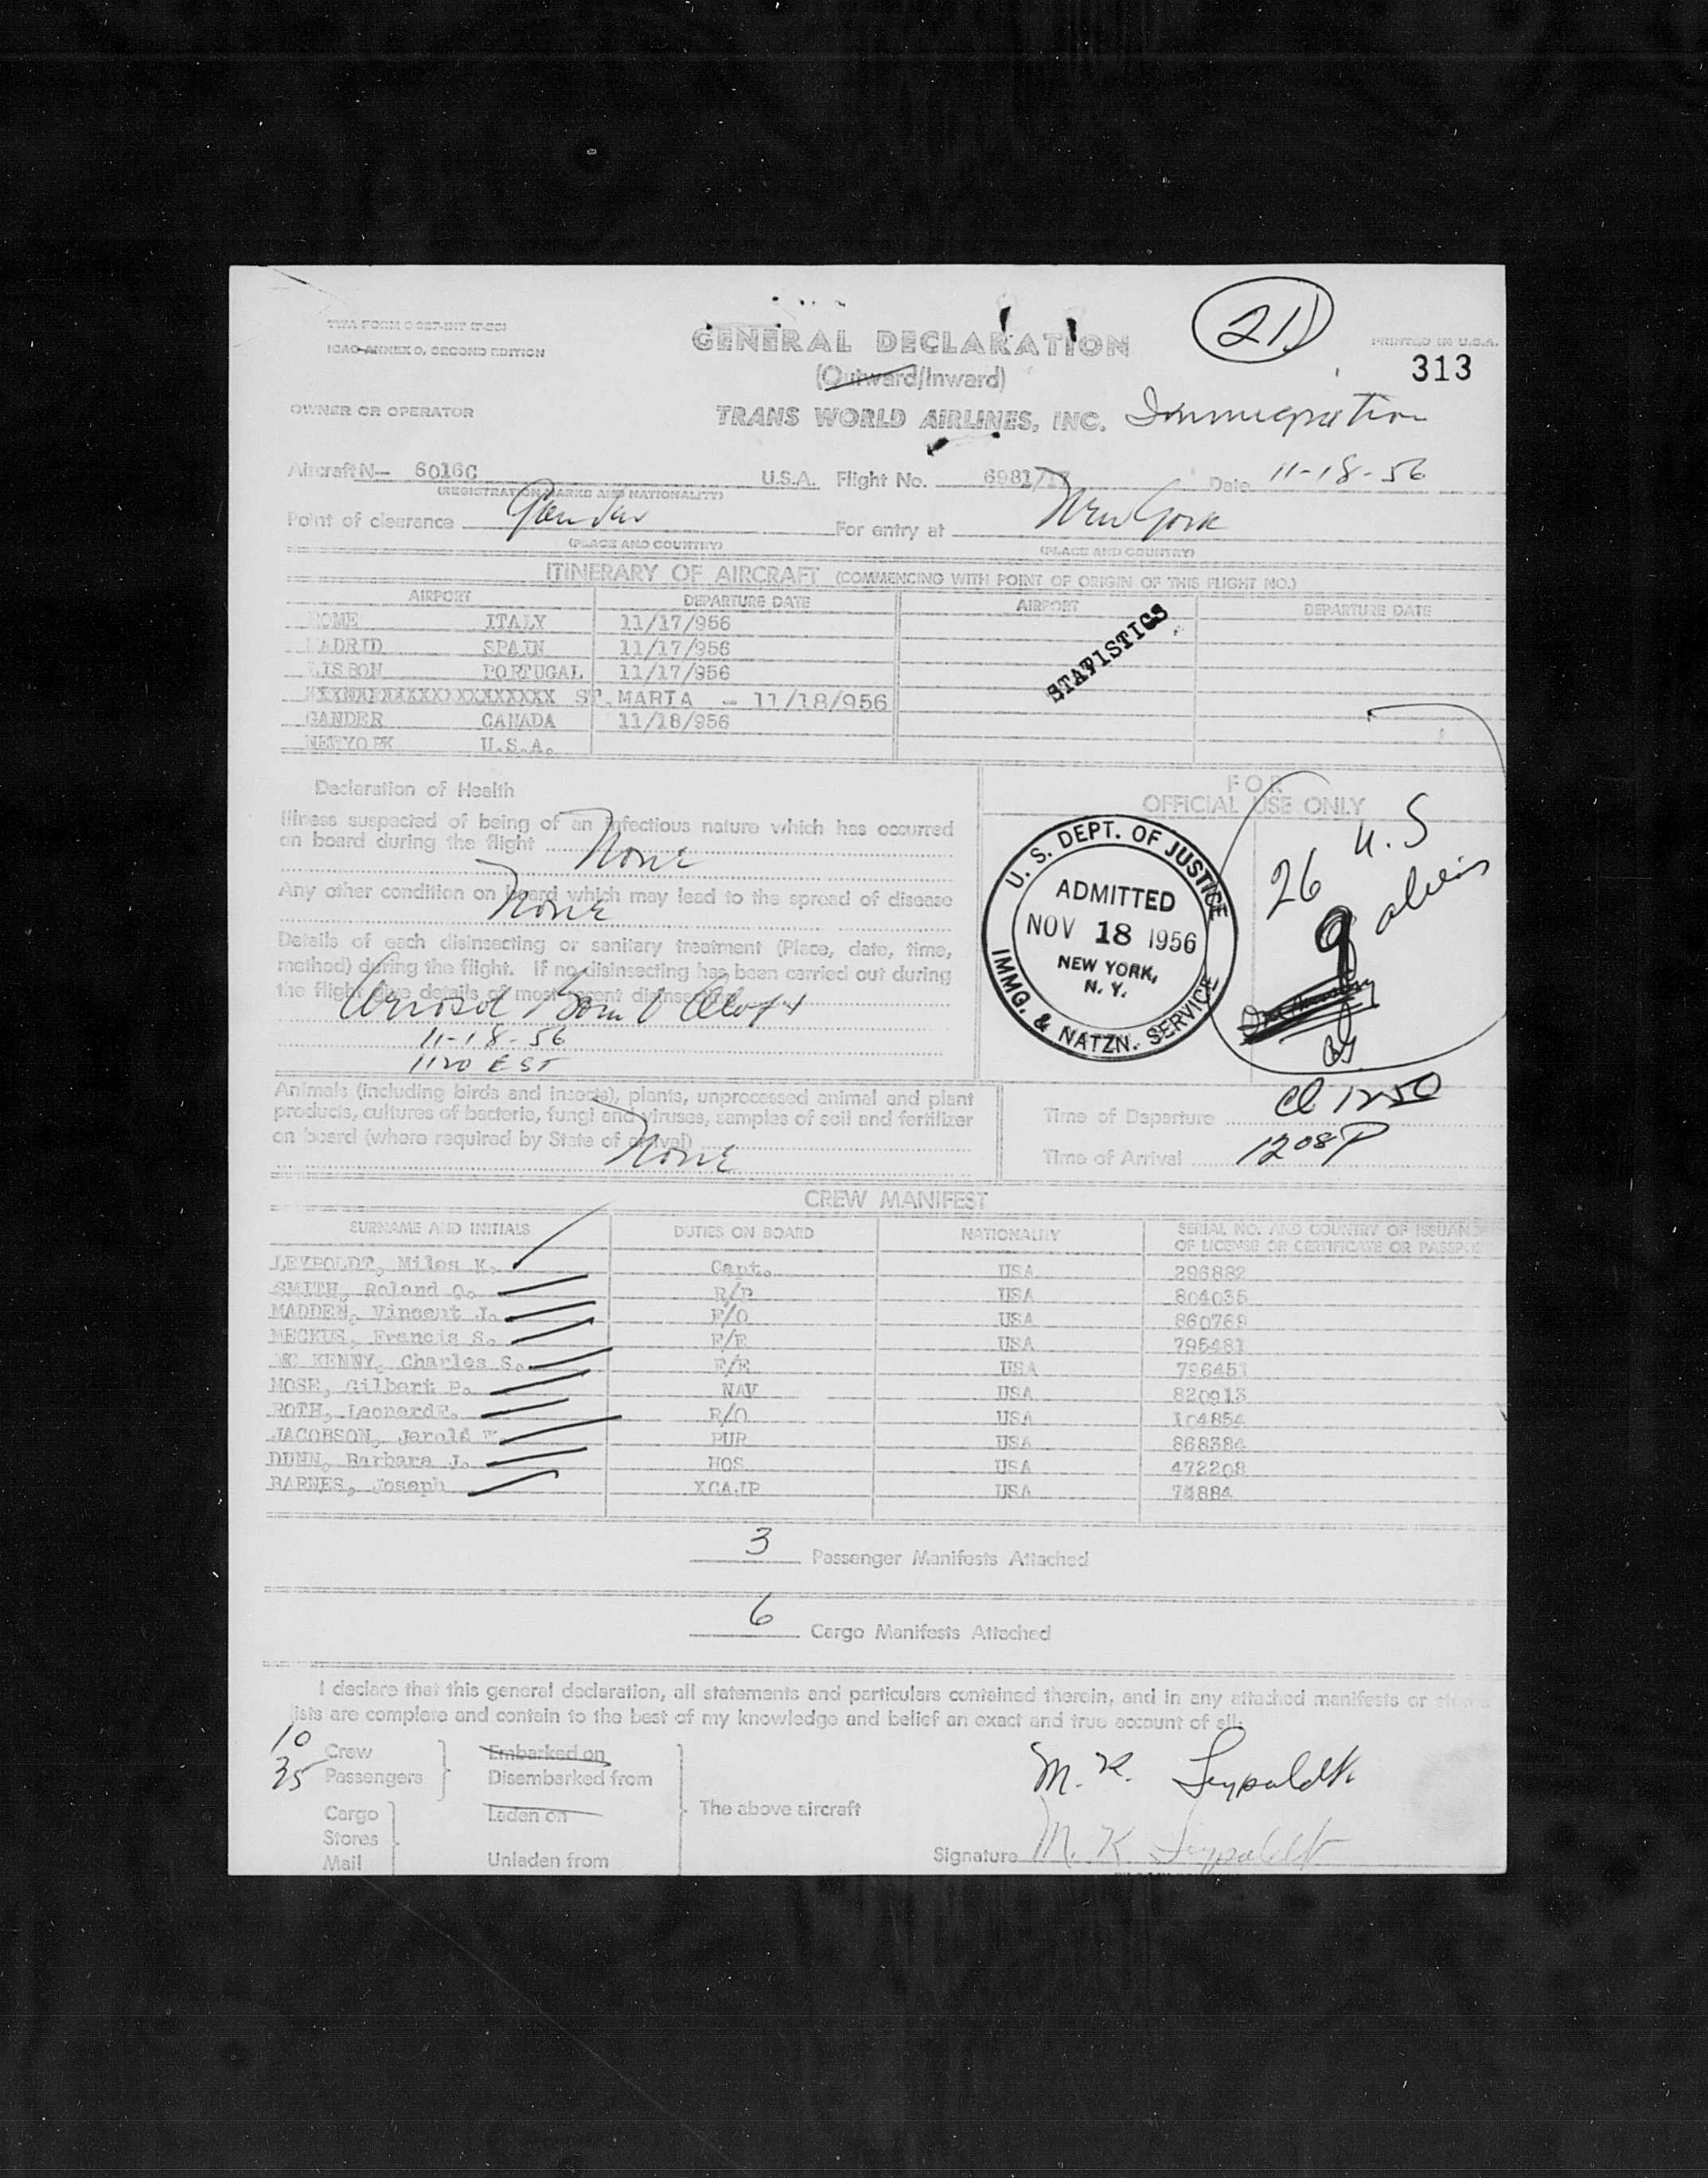 21
TWA FORM
ICAO-ANNEX 9, SECOND EDITION
GENERAL DECLARATION
PRINTED IN U.S.A.
313
(Outward/Inward)
OWNER OR OPERATOR
TRANS WORLD AIRLINES, INC.
Immigration
Aircraft N- 6016C U.S.A. Flight No. 6981/17 Date 11-18-56
(REGISTRATION MARKS AND NATIONALITY)
Point of clearance Gander For entry at New York
(PLACE AND COUNTRY) (PLACE AND COUNTRY)
ITINERARY OF AIRCRAFT (COMMENCING WITH POINT OF ORIGIN OF THIS FLIGHT NO.)
AIRPORT DEPARTURE DATE AIRPORT DEPARTURE DATE
ROME ITALY 11/17/956
MADRID SPAIN 11/17/956
LISBON PORTUGAL 11/17/956
ST.MARIA - 11/18/956
GANDER CANADA 11/18/956
NEWYORK U.S.A.
STATISTICS
Declaration of Health
Illness suspected of being of an infectious nature which has occurred
on board during the flight None
Any other condition on board which may lead to the spread of disease
None
Details of each disinsecting or sanitary treatment (Place, date, time,
method) during the flight. If no disinsecting has been carried out during
the flight give details of most recent disinsecting
Aerosol Bomb Aloft
11-18-56
1120 EST
FOR
OFFICIAL USE ONLY
U. S. DEPT. OF JUSTICE
ADMITTED
NOV 18 1956
NEW YORK,
N. Y.
IMMG. & NATZN. SERVICE
26 U.S
9 aliens
Animals (including birds and insects), plants, unprocessed animal and plant
products, cultures of bacteria, fungi and viruses, samples of soil and fertilizer
on board (where required by State of arrival)
None
Cl 1250
Time of Departure
Time of Arrival 1208P
CREW MANIFEST
SURNAME AND INITIALS DUTIES ON BOARD NATIONALITY SERIAL NO. AND COUNTRY OF ISSUANCE
OF LICENSE OR CERTIFICATE OR PASSPO
LEYPOLDT, Miles K. Capt. USA 296882
SMITH, Roland O. R/P USA 804035
MADDEN, Vincent J. F/O USA 860769
MECKUS, Francis S. F/E USA 795481
MC KENNY, Charles S. F/E USA 796451
MOSE, Gilbert P. NAV USA 820913
ROTH, Leonard E. R/O USA 104854
JACOBSON, Jerold W. PUR USA 868384
DUNN, Barbara J. HOS USA 472208
BARNES, Joseph XCAJP USA 74884
3 Passenger Manifests Attached
6 Cargo Manifests Attached
I declare that this general declaration, all statements and particulars contained therein, and in any attached manifests or stores
lists are complete and contain to the best of my knowledge and belief an exact and true account of all:
10 Crew
35 Passengers
Embarked on
Disembarked from
Cargo
Stores
Mail
Laden on
Unladen from
The above aircraft
M. K. Leypoldt
Signature M. K Leypoldt